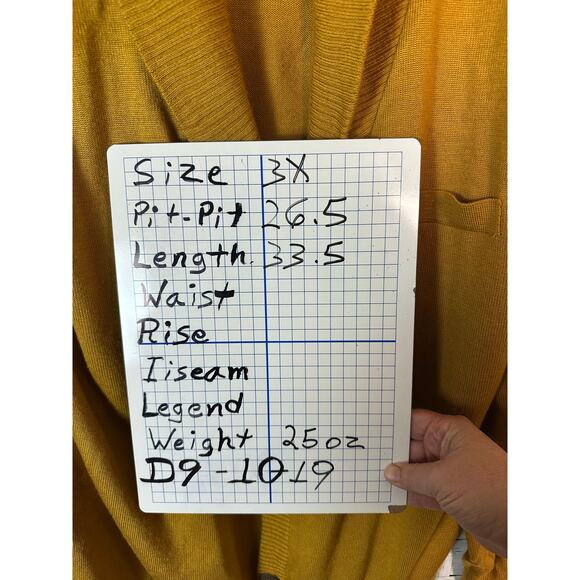 Size 3X
Pit-Pit 26.5
Length 33.5
Waist
Rise
Iiseam
Legend
Weight 25 oz
D9-10-19